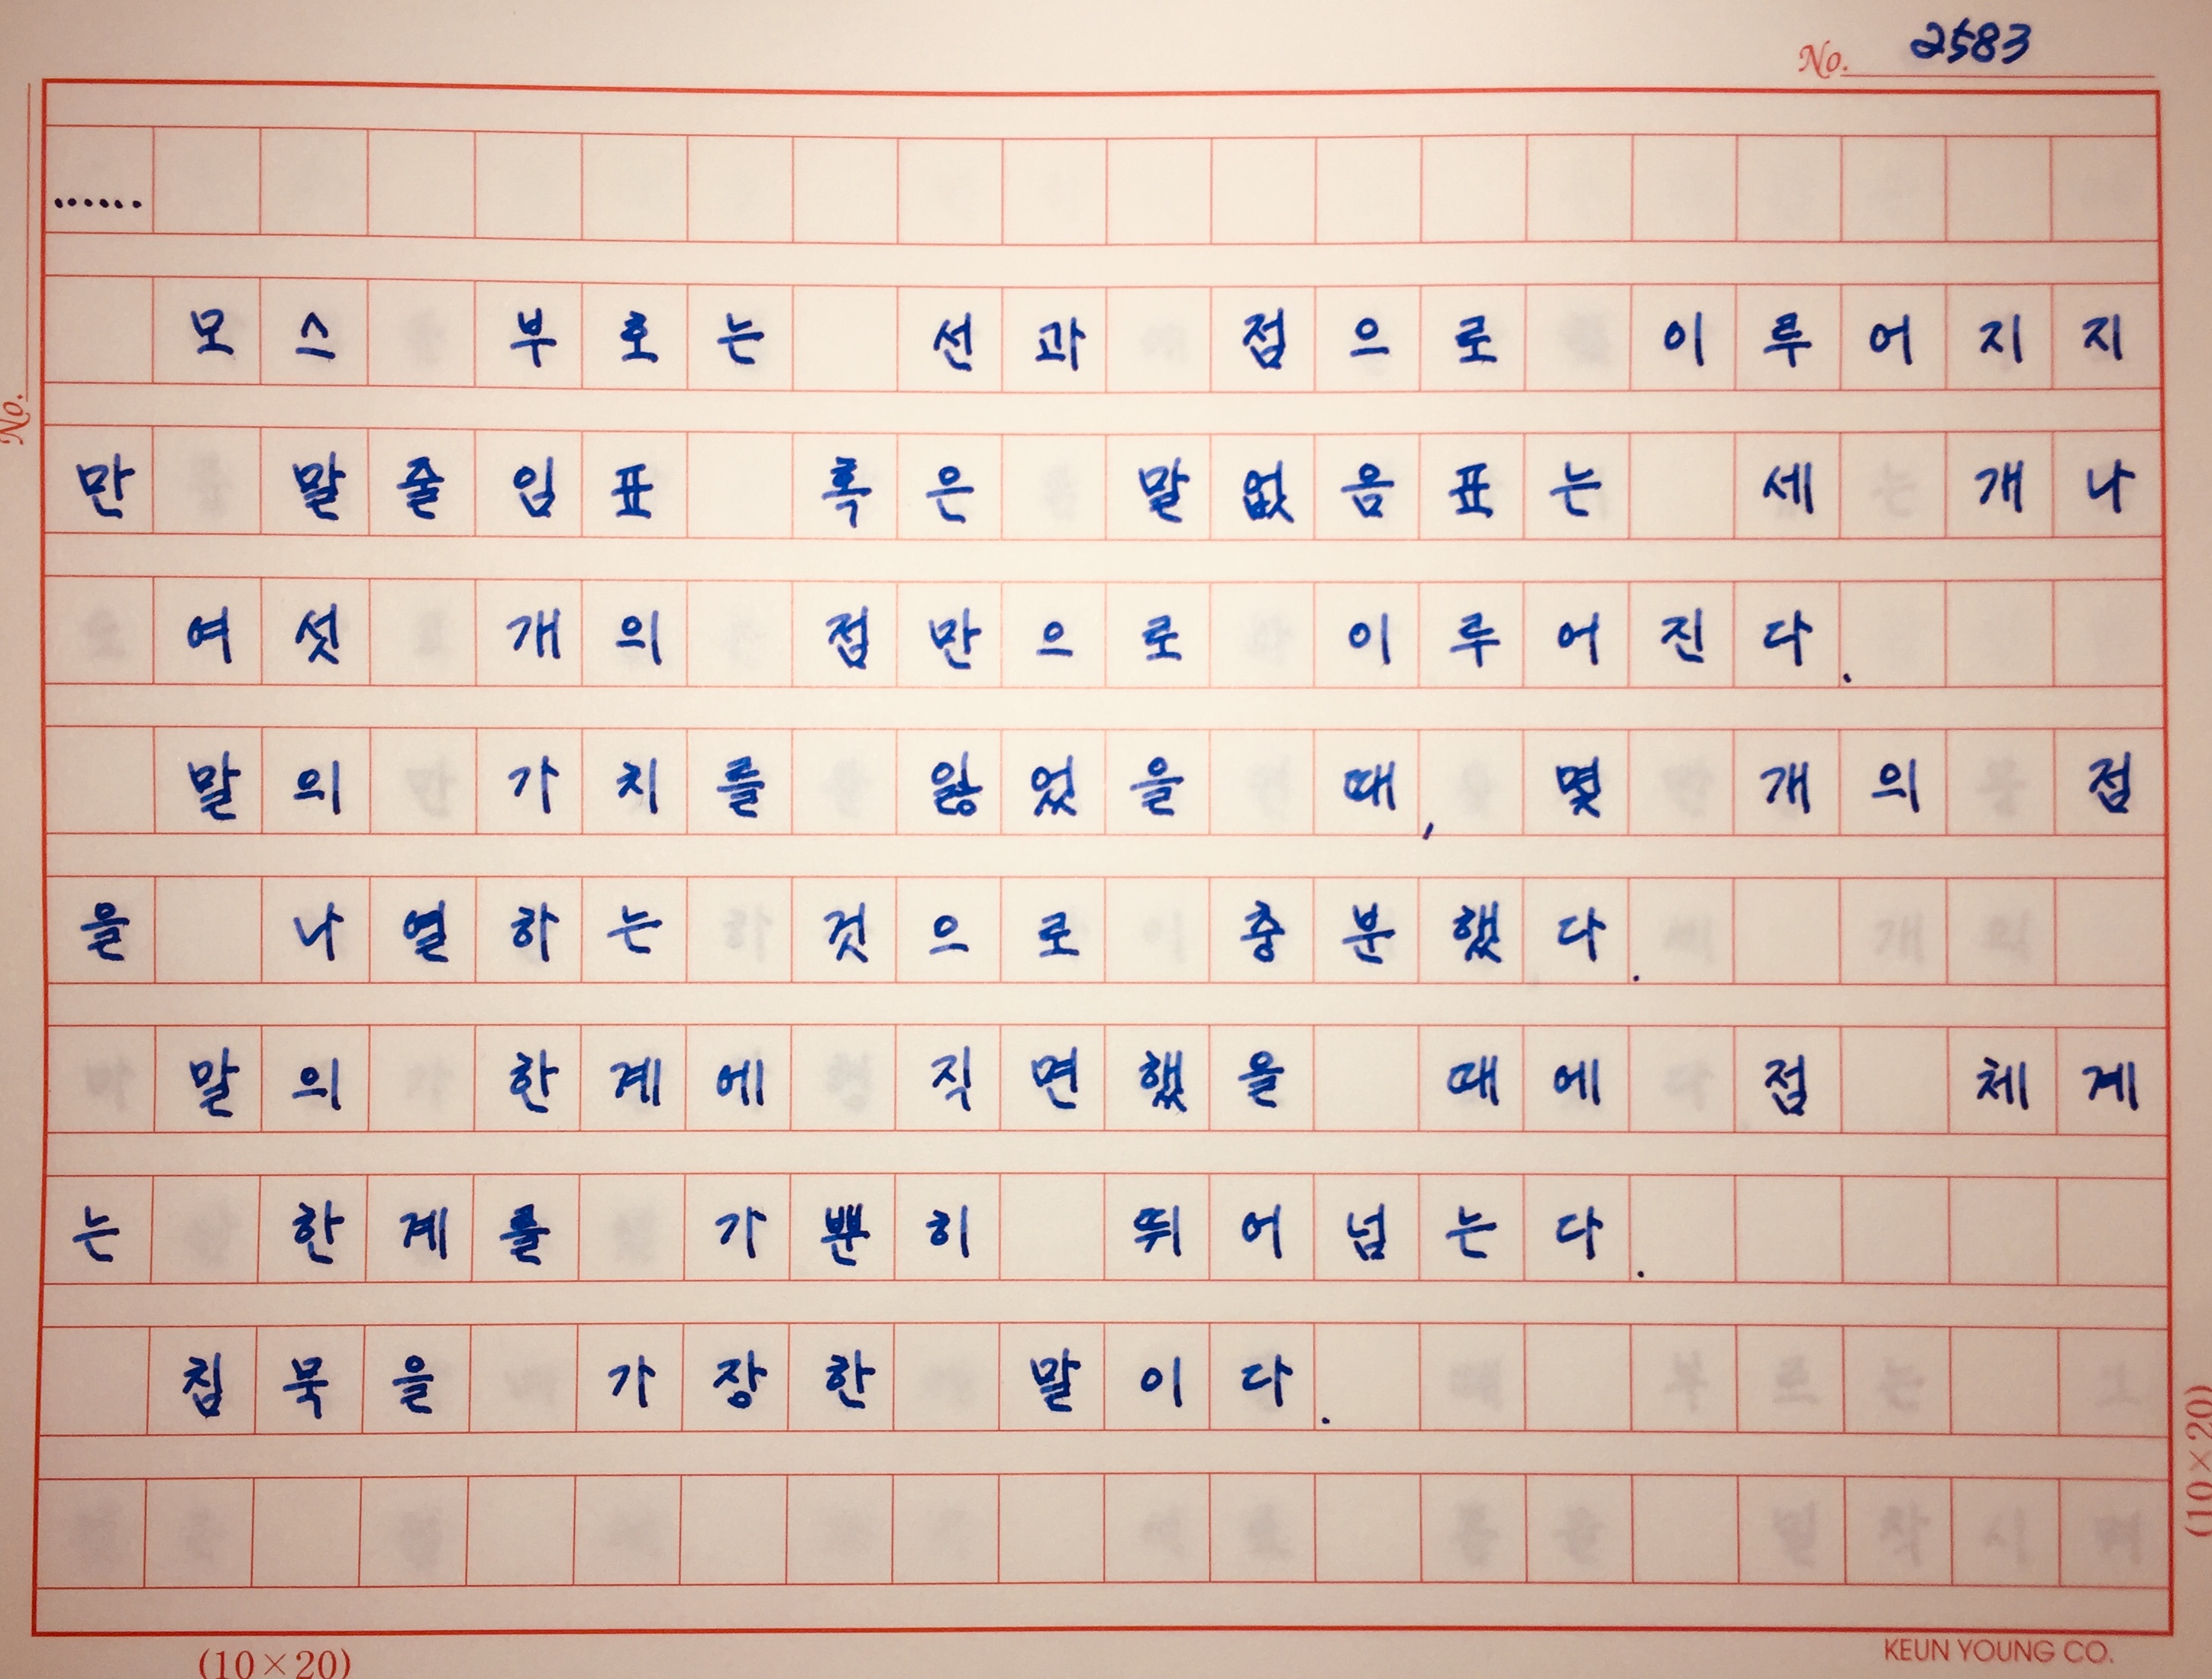 No. 2583
……
모스 부호는 선과 점으로 이루어지지
만 말줄임표 혹은 말없음표는 세 개나
여섯 개의 점만으로 이루어진다.
말의 가치를 잃었을 때, 몇 개의 점
을 나열하는 것으로 충분했다.
말의 한계에 직면했을 때에 점 체계
는 한계를 가뿐히 뛰어넘는다.
침묵을 가장한 말이다.
No.
(10×20)
(10×20)
KEUN YOUNG CO.